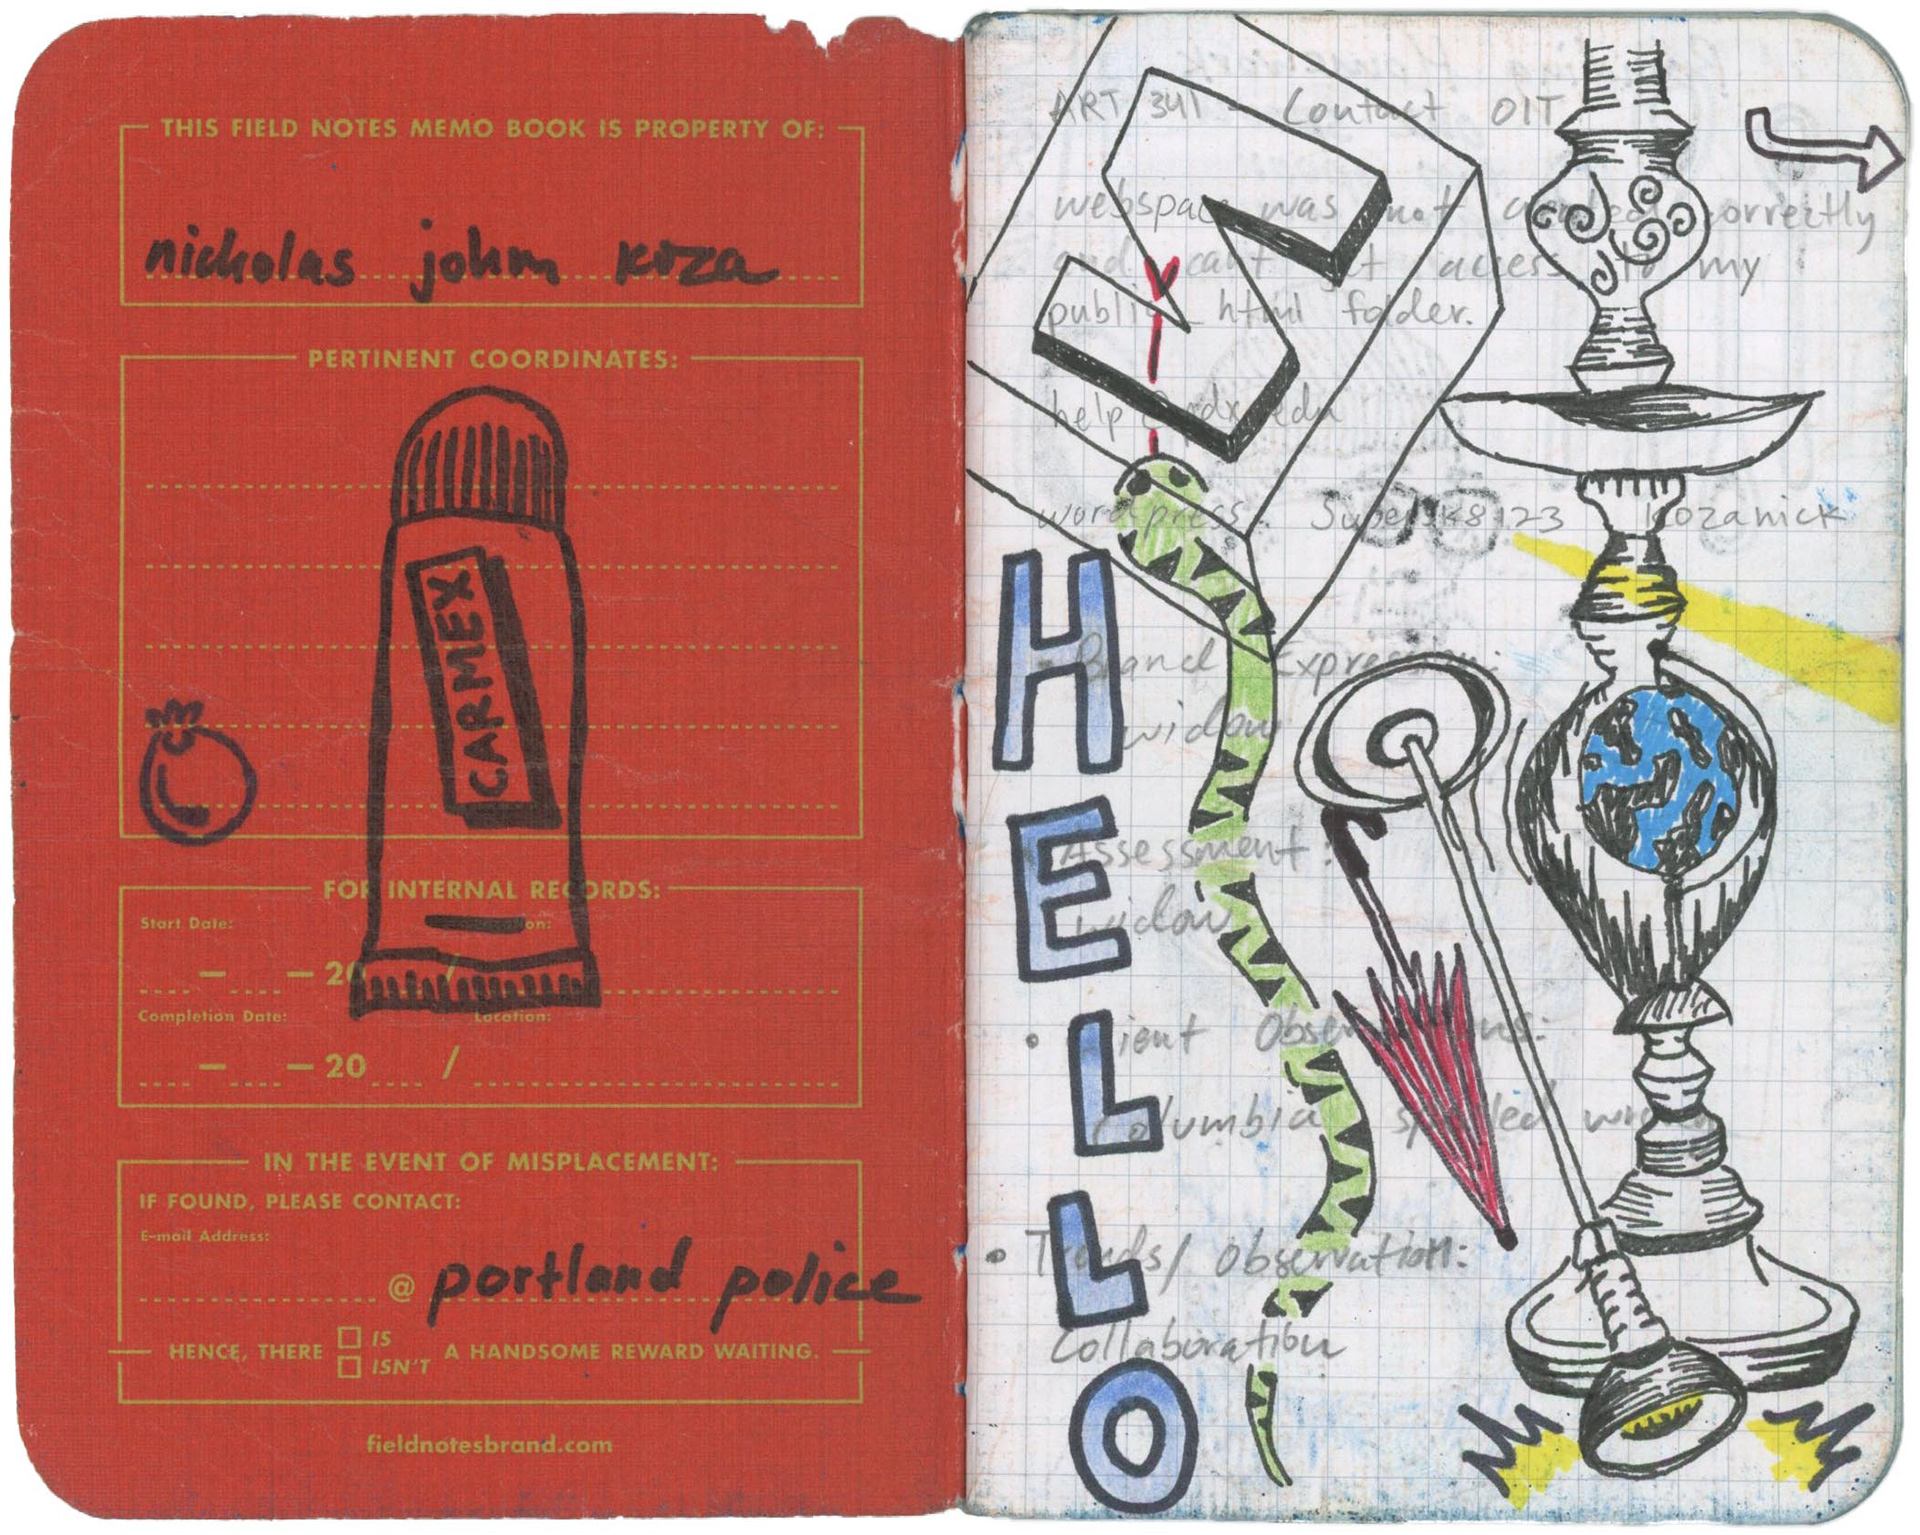 THIS FIELD NOTES MEMO BOOK IS PROPERTY OF:
nickolas john koza
PERTINENT COORDINATES:
CARMEX
FOR INTERNAL RECORDS:
Start Date:
— — 20 /
Completion Date: Location:
— — 20 /
IN THE EVENT OF MISPLACEMENT:
IF FOUND, PLEASE CONTACT:
E-mail Address:
@ portland police
HENCE, THERE IS A HANDSOME REWARD WAITING.
ISN'T
fieldnotesbrand.com
ART 341 - Contact OIT
webspace was not created correctly
and can't get access to my
public_html folder.
help @ pdx.edu
wordpress: kozanick
• Brand Expression:
widow
• Assessment:
widow
• Client Observations:
Columbia spelled wrong
• Trends/ Observation:
Collaboration
HELLO